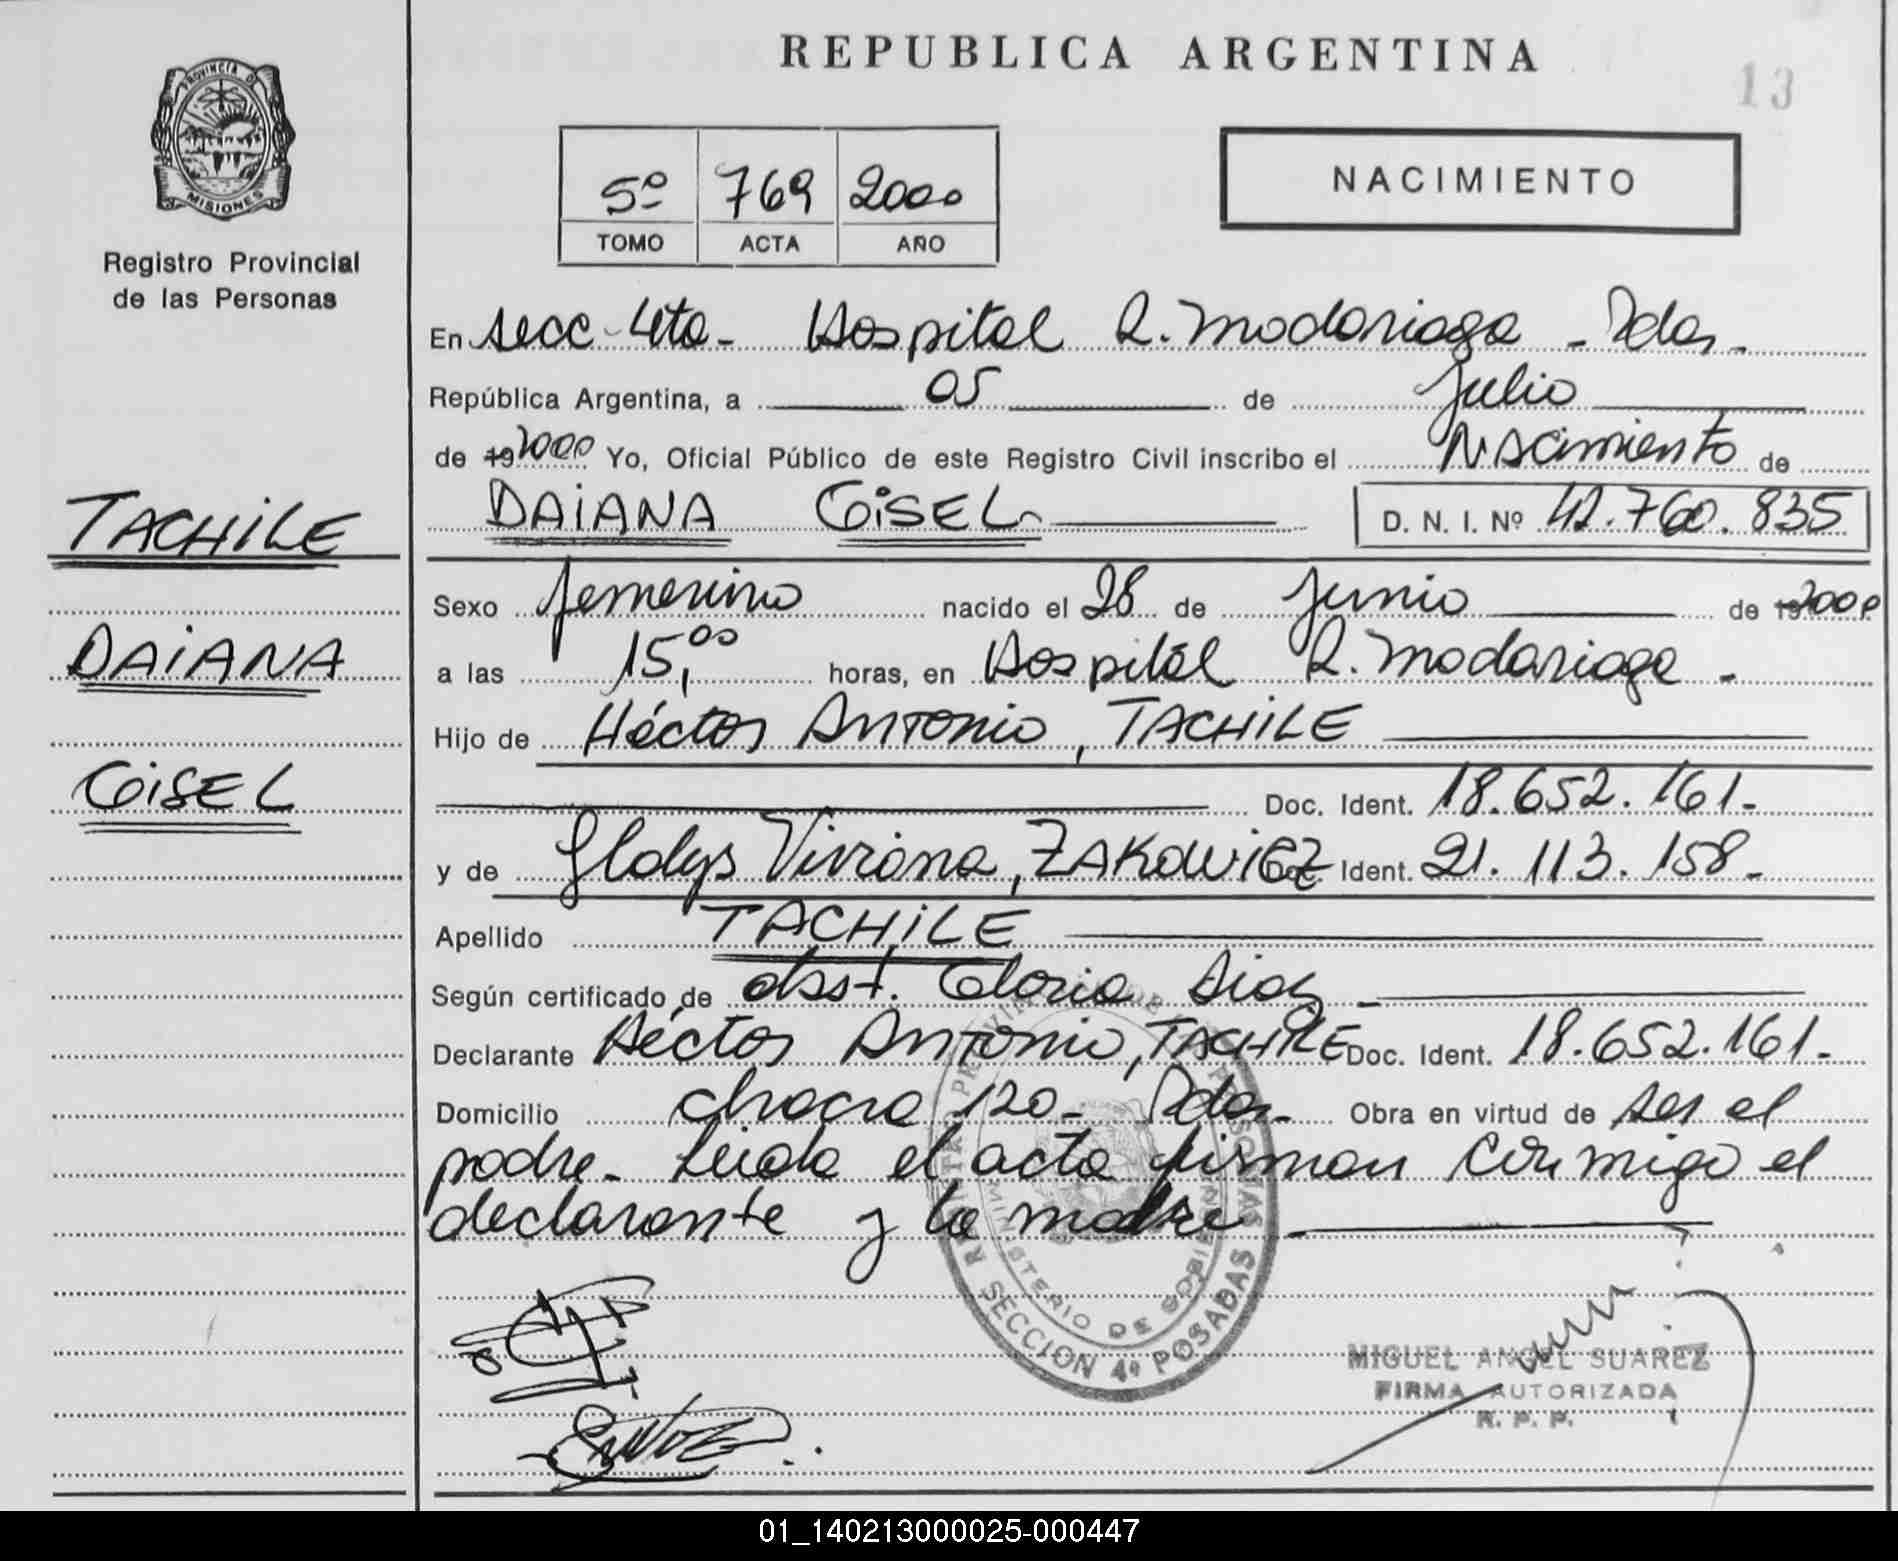 REPUBLICA ARGENTINA
13
PROVINCIA DE
MISIONES
Registro Provincial
de las Personas
5º 769 2000
TOMO ACTA AÑO
NACIMIENTO
En secc-4ta- Hospital R. Madariaga - Pdas.-
República Argentina, a 05 de Julio
de 19 2000 Yo, Oficial Público de este Registro Civil inscribo el Nacimiento de
DAIANA GISEL D. N. I. Nº 42.760.835
TACHILE
DAIANA
GISEL
Sexo femenino nacido el 28 de Junio de 2000
a las 15,00 horas, en Hospital R. Madariaga -
Hijo de Héctor Antonio, TACHILE
Doc. Ident. 18.652.161.-
y de Gladys Viviana, ZAKOWICZ Ident. 21.113.158.-
Apellido TACHILE
Según certificado de obst. Gloria Diaz -
Declarante Héctor Antonio, TACHILE Doc. Ident. 18.652.161.-
Domicilio chacra 120- Pdas.- Obra en virtud de ser el
padre- Leida el acta firman conmigo el
declarante y la madre -
MINISTERIO DE GOBIERNO
SECCION 4º POSADAS
MIGUEL ANGEL SUAREZ
FIRMA AUTORIZADA
R. P. P.
01_140213000025-000447